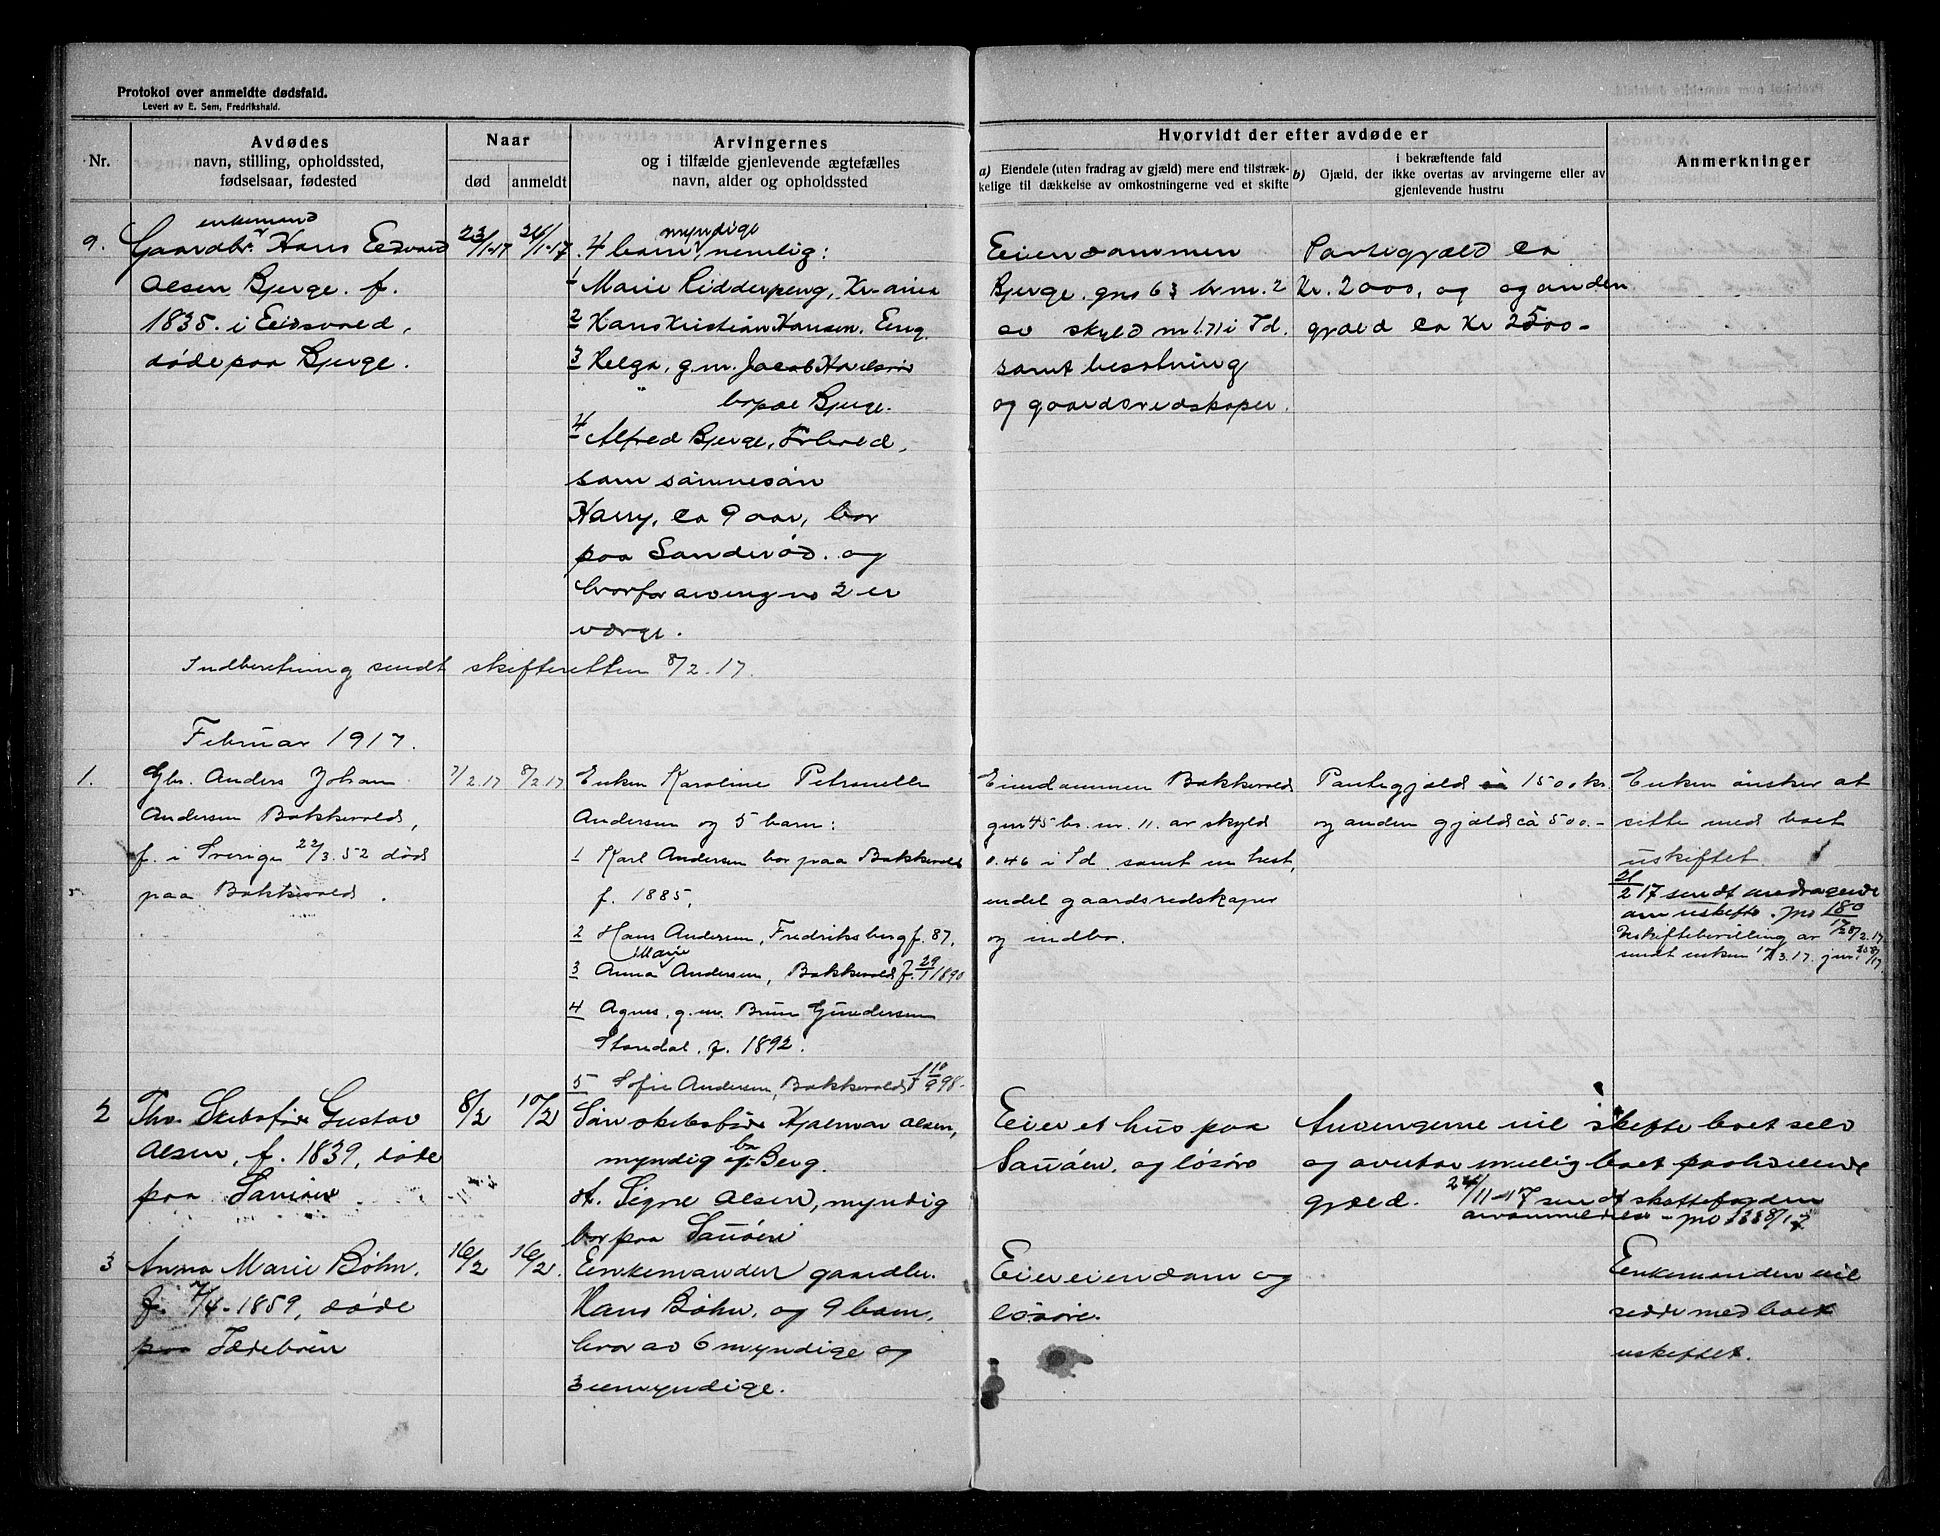 Protokol over anmeldte dødsfald.
Levert av E. Sem, Fredrikshald.
Nr.
Avdødes
navn, stilling, opholdssted,
fødselsaar, fødested
Naar
død
anmeldt
Arvingernes
og i tilfælde gjenlevende ægtefælles
navn, alder og opholdssted
Hvorvidt der efter avdøde er
a) Eiendele (uten fradrag av gjæld) mere end tilstræk-
kelige til dækkelse av omkostningerne ved et skifte
b)
i bekræftende fald
Gjæld, der ikke overtas av arvingerne eller av
gjenlevende hustru
Anmerkninger
9.
enkemand
Gaardbr. Hans Eedvard
Olsen Bjerge. f.
1835. i Eidsvold,
døde paa Bjerge.
23/1-17
myndige
4 barn, nemlig:
1 Marie Ridderpeng, Kr-ania
2 Hans Kristian Hansen. Eng.
3 Helga, g.m. Jacob
bor paa Bjerge.
4 Alfred Bjerge,
sam sønnesøn
Harry, ca 9 aar, bor
paa Sanderød. og
hvorfor arving no 2 er
værge.
Eiendommen
Bjerge. gno 63 br.nr. 2
av skyld m 1.71 i Id.
samt besætning
og gaardsredskaper.
Pantegjæld ca
Kr. 2000, og og anden
gjæld ca Kr 2500-
Indberetning sendt skifteretten 8/2.17.
Februar 1917.
1.
Gbr. Anders Johan
Andersen Bakkevold,
f. i Sverige 22/3.52 død
paa Bakkevold.
7/2.17
8/2.17
Enken Karoline Petronelle
Andersen og 5 barn:
1 Karl Andersen bor paa Bakkevold
f. 1885,
2 Hans Andersen, Fredriksberg f. 87,
Marie
3 Anna Andersen, Bakkevold f. 29/1 1890
4 Agnes, g.m. Brun Gundersen
Stendal, f. 1892.
5 Sofie Andersen, Bakkevold f 10/9 98-
Eiendommen Bakkevold
gnr 45 br. nr. 11. av skyld
0.46 i Id. samt en hest,
endel gaardsredskaper
og indbo.
Pantegjæld 1500 kr.
og anden gjæld ca 500.-
Enken ønsker at
sitte med boet
uskiftet
21/2 17 sendt andragende
om uskifte. jno 180/17
Uskiftebevilling av 28/2.17
sendt enken 17/3.17. jnr.
2
Fhv. Skibsfører Gustav
Olsen, f. 1839, døde
paa Sauøen
8/2
10/2
Søn skibsfører Hjalmar Olsen,
bor
myndig Berg.
dt. Signe Olsen, myndig
bor paa Sauøen
Eier et hus paa
Sauøen, og løsøre
Arvingerne vil skifte boet selv
og avertar mulig boet paahvilende
gjæld. 24/11-17 sendt skattefogden
arvanmeldelse - jno 1338/17
3
Anna Marie Bøhn.
f. 7/4-1859, døde
paa Isebakke
16/2
16/2
Enkemanden gaardbr.
Hans Bøhn, og 9 barn,
hvorav 6 myndige og
3 umyndige.
Eier eiendom og
løsøre.
Enkemanden vil
sidde med boet
uskiftet.